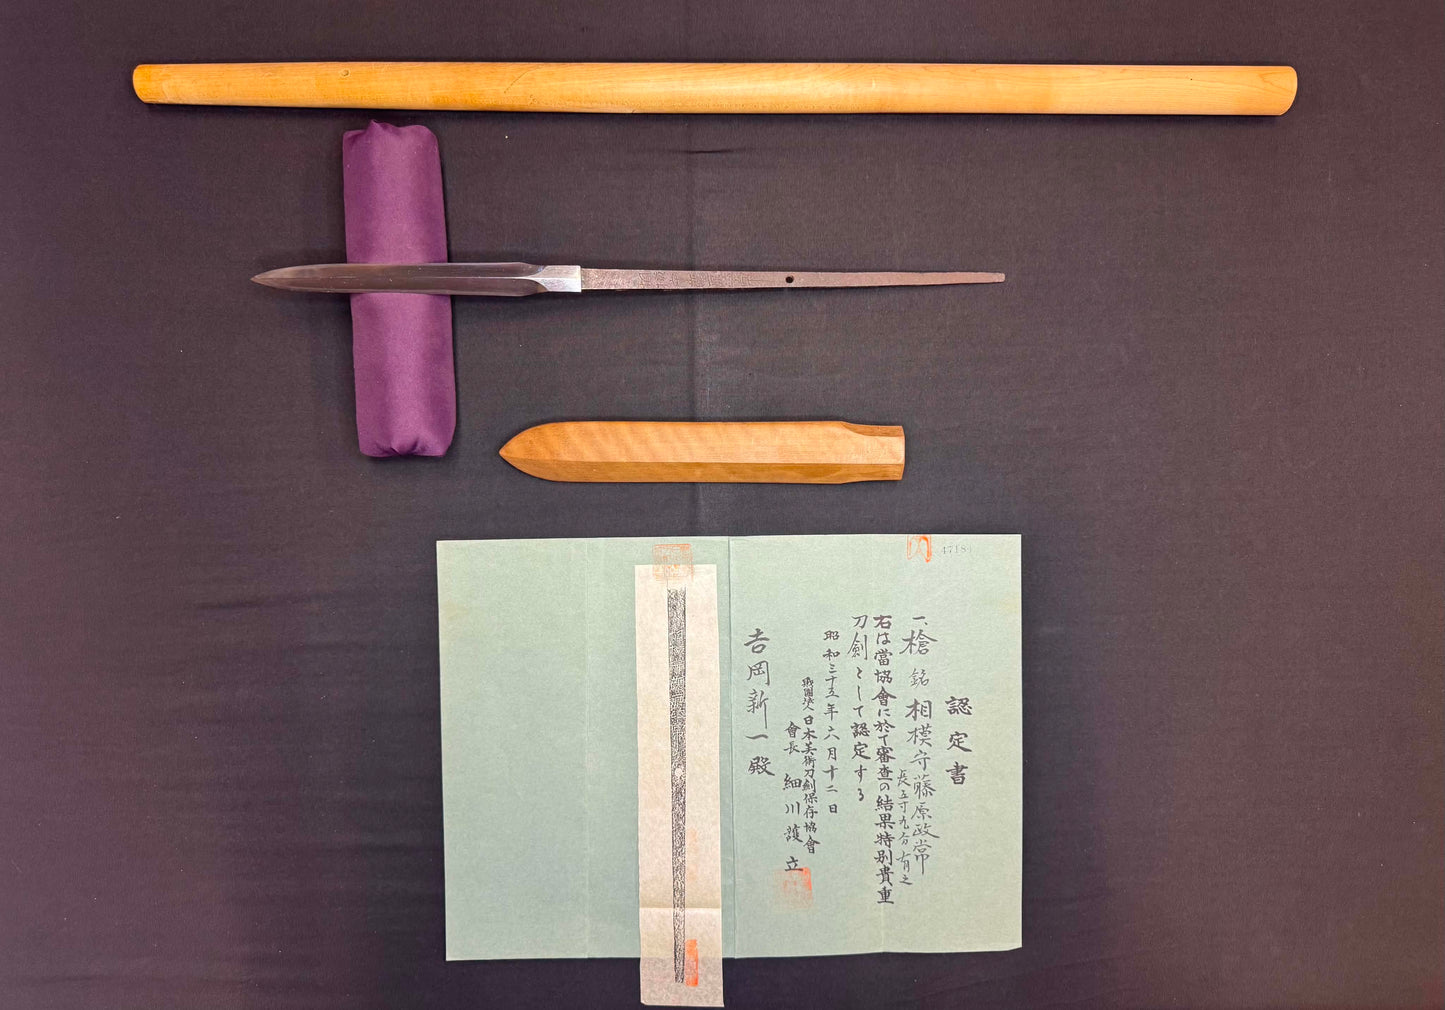 認定書
一、槍 銘 相模守藤原政常
長五寸九分有之
右は當協會に於て審査の結果特別貴重
刀劍として認定する
昭和三十五年六月十二日
財團法人日本美術刀劍保存協會
會長 細川護立
吉岡新一殿